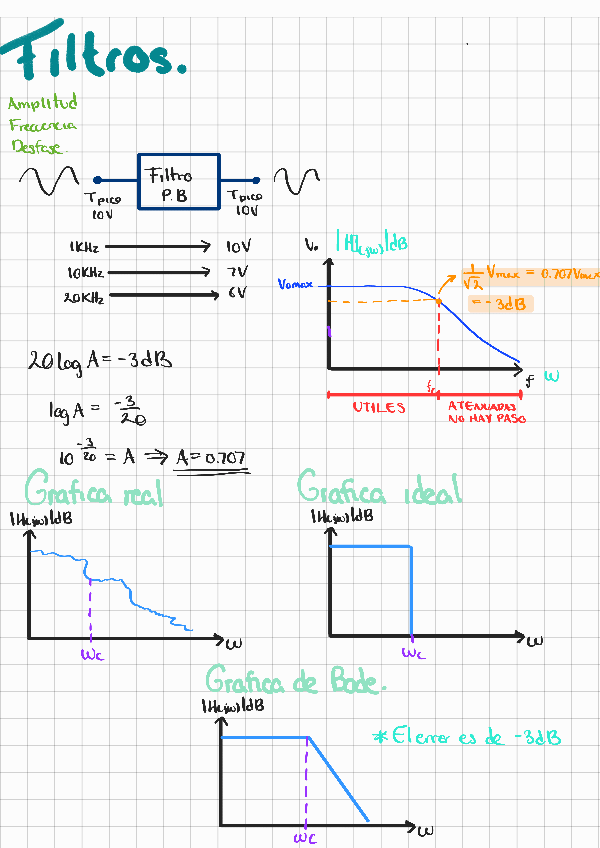 Filtros.
Amplitud
Frecuencia
Desfase.
Filtro
P.B
Tpico
10V
Tpico
10V
1KHz → 10V
10KHz → 7V
20KHz → 6V
Vo |H(jw)|dB
Vomax
1/√2 Vmax = 0.707Vmax
= -3dB
fc
f w
UTILES
ATENUADAS
NO HAY PASO
20 log A = -3dB
log A = -3/20
10^(-3/20) = A ⇒ A = 0.707
Grafica real
|H(jw)|dB
w
wc
Grafica ideal
|H(jw)|dB
w
wc
Grafica de Bode.
|H(jw)|dB
* El error es de -3dB
w
wc